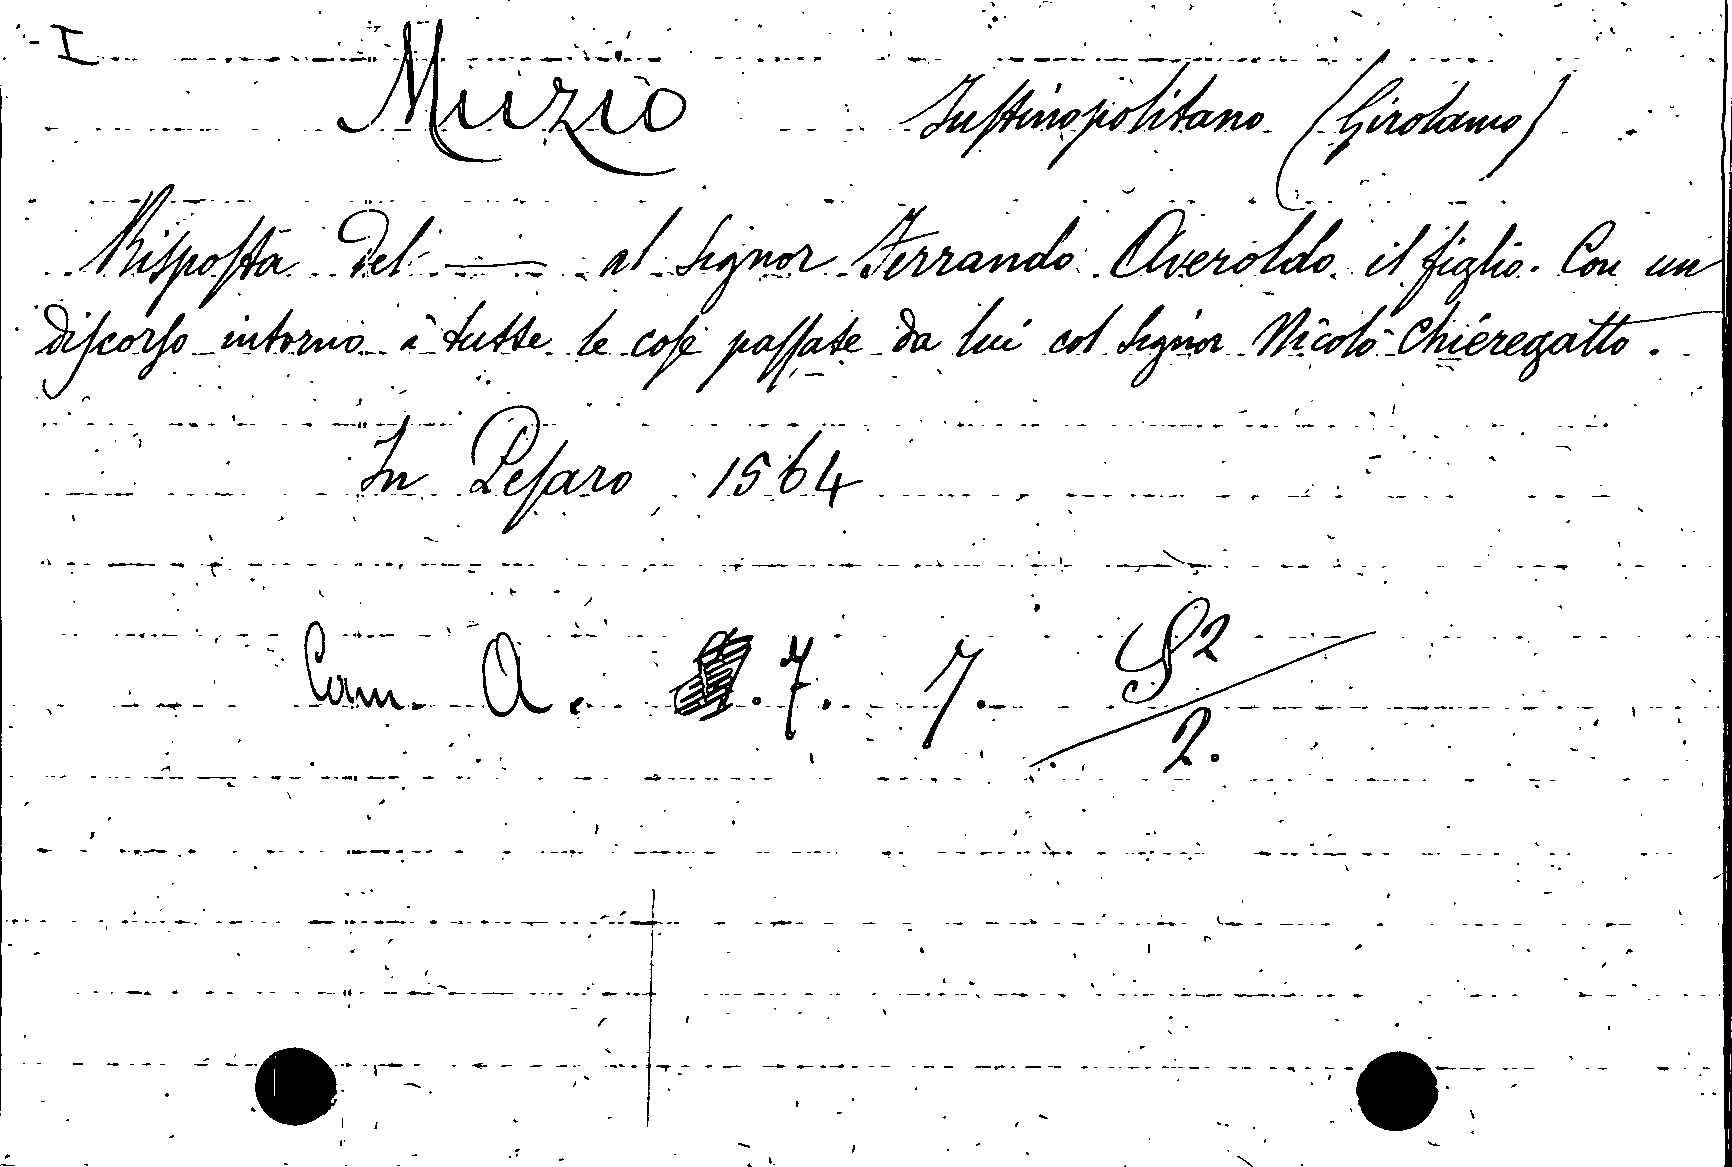 I
Muzio Iustinopolitano (Girolamo)
Risposta del —— al Signor Ferrando Averoldo il figlio. Con un
discorso intorno à tutte le cose passate da lui col Signor Nicolò Chieregatto.
In Pesaro 1564
Cam. A. .7. 7. S2/2.